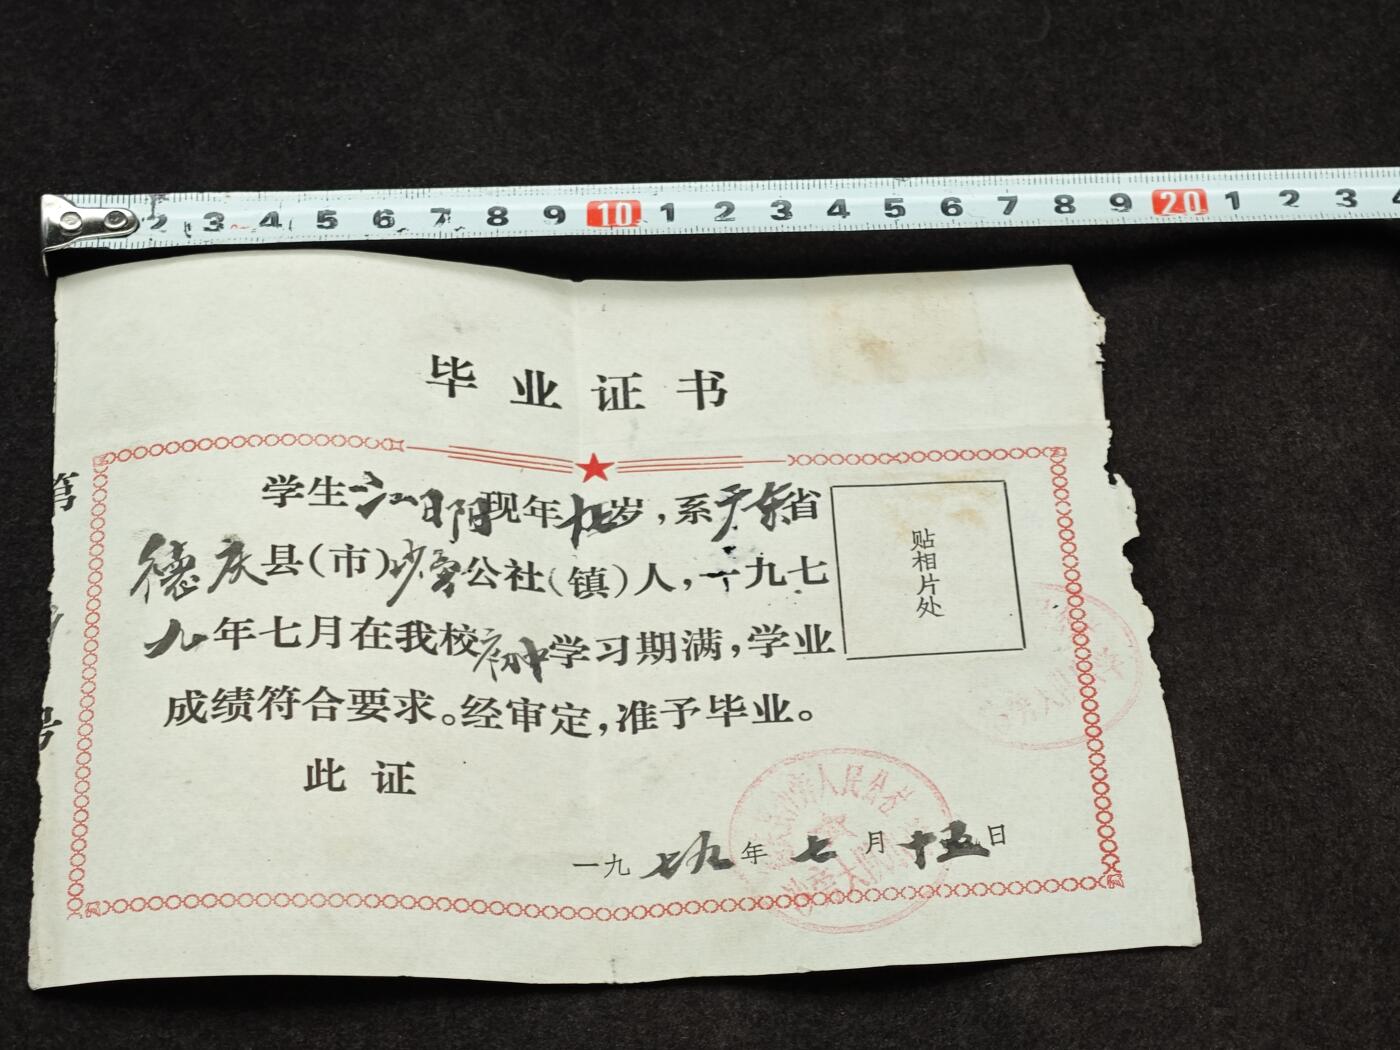 2 3 4 5 6 7 8 9 10 1 2 3 4 5 6 7 8 9 20 1 2 3 4
毕业证书
学生江日阳现年岁，系广东省
德庆县（市）沙旁公社（镇）人，一九七
九年七月在我校初中学习期满，学业
成绩符合要求。经审定，准予毕业。
此证
贴相片处
一九七九年七月十五日
第
号
人民公社